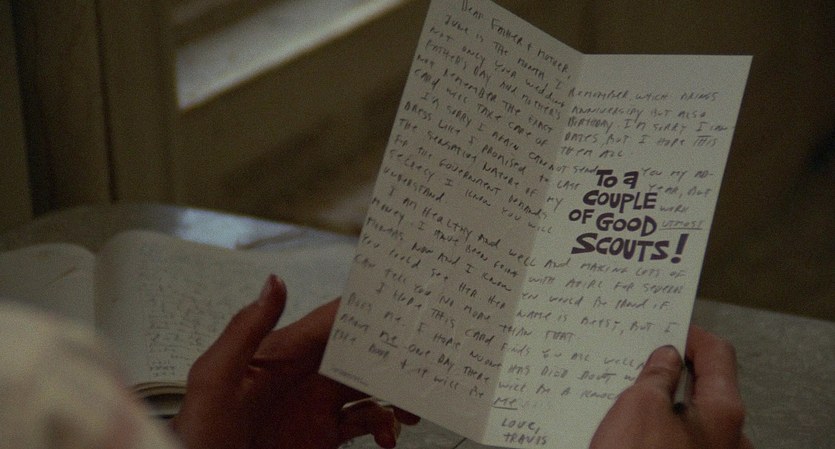 DEAR FATHER & MOTHER,
JUNE IS THE MONTH I REMEMBER WHICH BRINGS
NOT ONLY YOUR WEDDING ANNIVERSARY BUT ALSO
FATHER'S DAY AND MOTHER'S BIRTHDAY. I'M SORRY I CAN
NOT REMEMBER THE EXACT DATES, BUT I HOPE THIS
CARD WILL TAKE CARE OF THEM ALL
I'M SORRY I AGAIN CANNOT SEND YOU MY AD-
DRESS LIKE I PROMISED TO LAST YEAR, BUT
THE SENSATIVE NATURE OF MY WORK
FOR THE GOVERNMENT DEMANDS UTMOST
SECRECY I KNOW YOU WILL
UNDERSTAND
TO A
COUPLE
OF GOOD
SCOUTS!
I AM HEALTHY AND WELL AND MAKING LOTS OF
MONEY. I HAVE BEEN GOING WITH A GIRL FOR SEVERAL
MONTHS NOW AND I KNOW YOU WOULD BE PROUD IF
YOU COULD SEE HER HER NAME IS BETSY, BUT I
CAN TELL YOU NO MORE THAN THAT
I HOPE THIS CARD FINDS YOU ALL WELL
DOES ME. I HOPE NO ONE HAS DIED DON'T
ABOUT ME ONE DAY THERE WILL BE A KNOCK
THE DOOR & IT WILL BE ME
LOVE,
TRAVIS